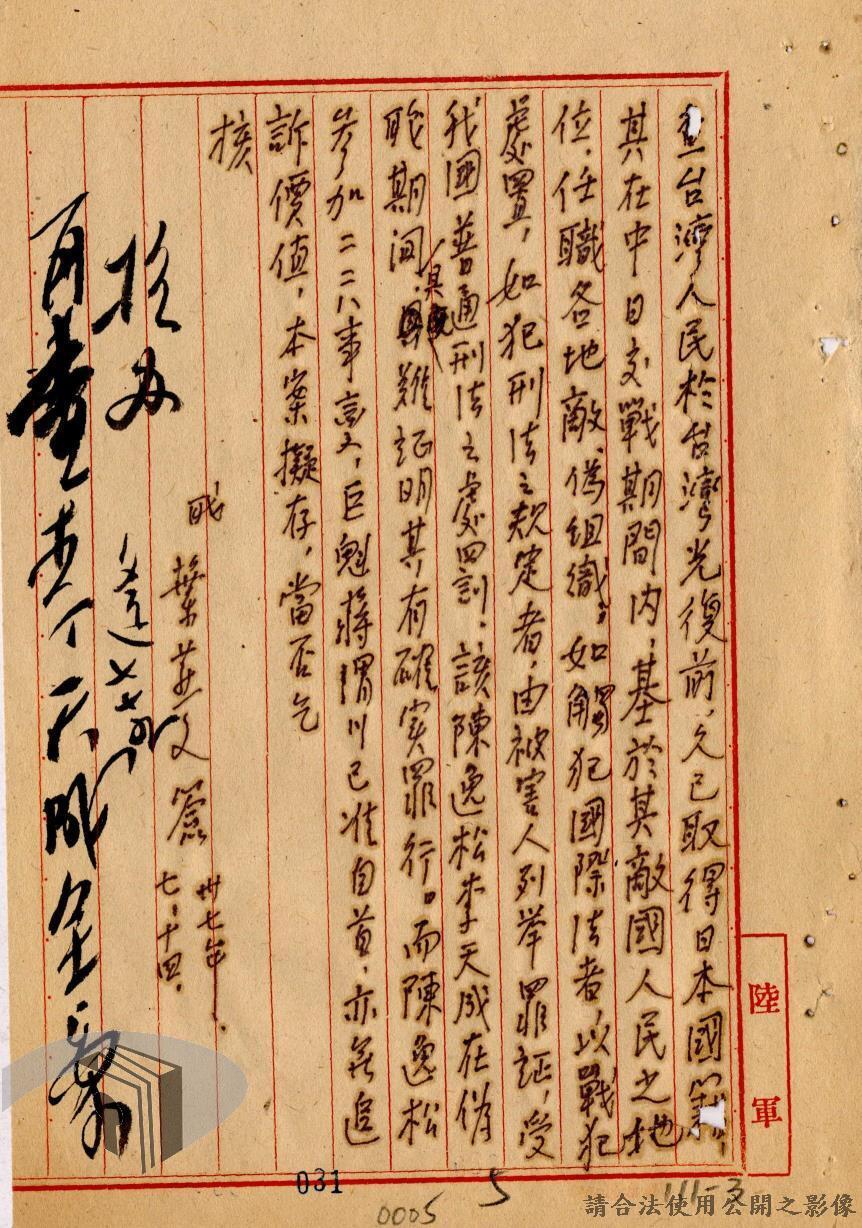 查台灣人民於台灣光復前,久已取得日本國籍,
其在中日交戰期間內,基於其敵國人民之地
位,任職各地敵、偽組織,如觸犯國際法者,以戰犯
處置,如犯刑法之規定者,由被害人列举罪証,受
我國普通刑法之處罰,該陳逸松李天成在偽
職期间,具難証明其有確实罪行。而陳逸松
參加二二八事变,巨魁蔣渭川已准自首,亦無追
訴價值,本案擬存,當否乞
核
職 葉 簽 卅七年、七、十四、
李天成全案
陸軍
031
0005
5
111-3
請合法使用公開之影像